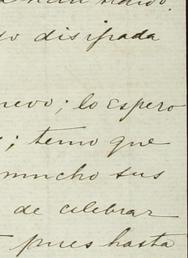 disipada
nuevo; lo espero
; temo que
mucho sus
de celebrar
pues hasta